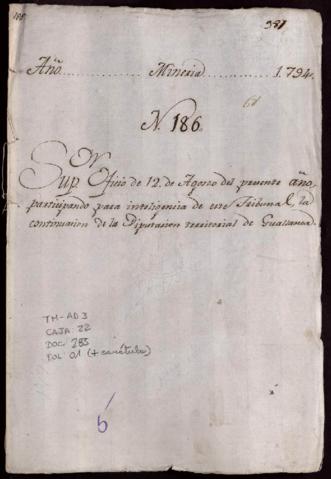 186
987
Año........ Mineria........ 1.794.
61
N. 186.
Sup.or Oficio de 12, de Agosto del presente año,
participando para inteligencia de este Tribunal, la
continuacion de la Diputacion territorial de
TM-AD3
CAJA: 22
DOC: 283
FOL: 01 (+ carátula)
6